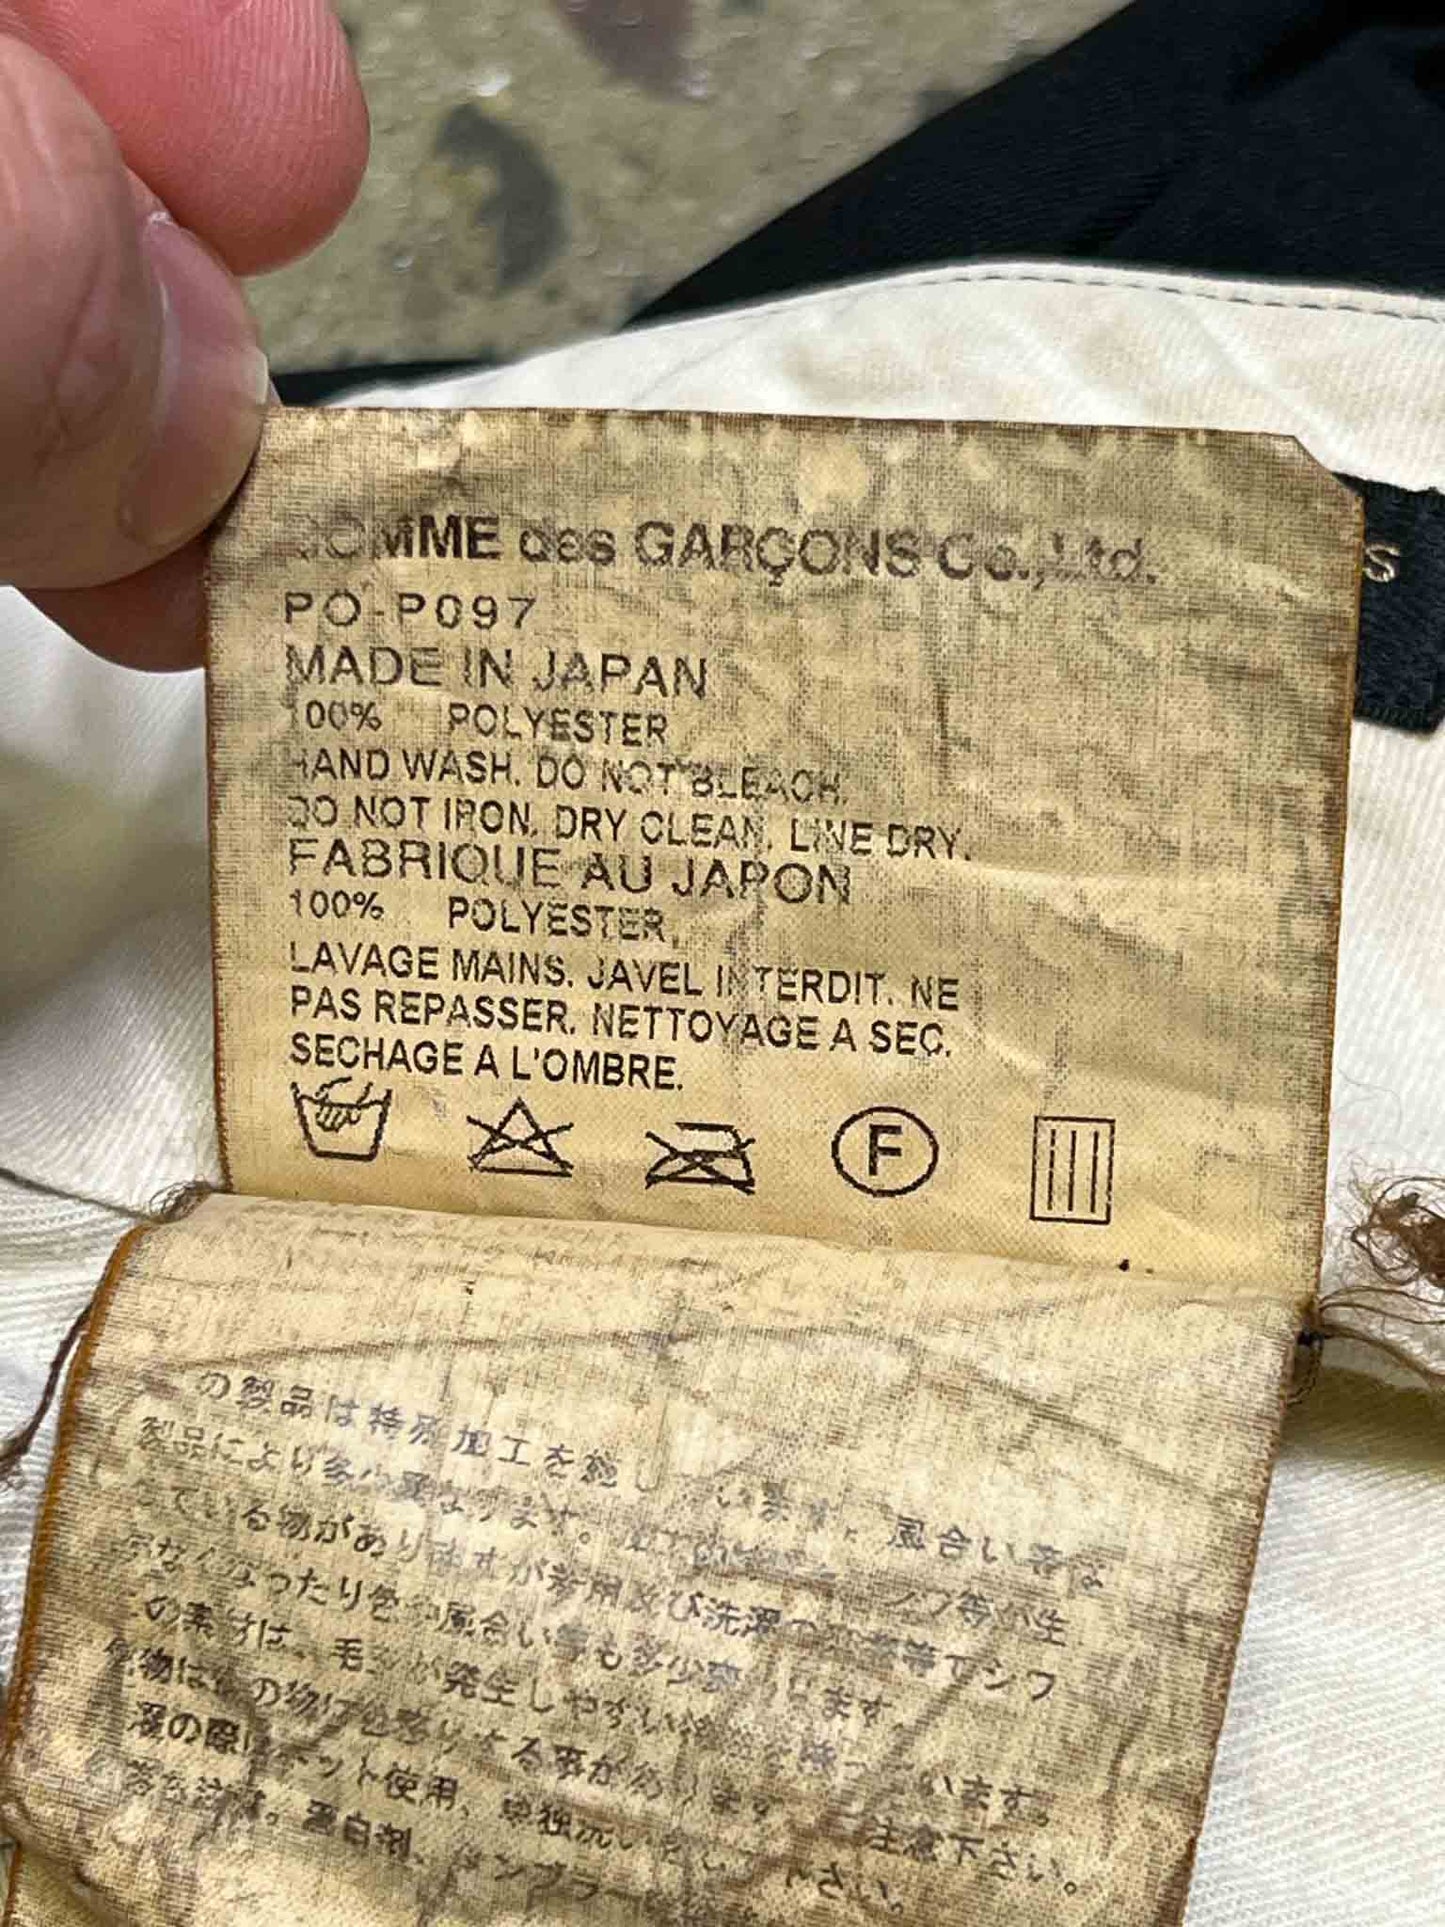 COMME des GARÇONS Co.,Ltd.
PO-P097
MADE IN JAPAN
100% POLYESTER
HAND WASH. DO NOT BLEACH.
DO NOT IRON. DRY CLEAN. LINE DRY.
FABRIQUE AU JAPON
100% POLYESTER.
LAVAGE MAINS. JAVEL INTERDIT. NE
PAS REPASSER. NETTOYAGE A SEC.
SECHAGE A L'OMBRE.
F
S
の製品は特殊加工を施し います。風合い等は
製品により多少異なります。 等が生
じている物がありますが着用及び洗濯 等でシワ
になったり色や風合い等も多少変 ります。
の素材は、毛 が発生しやすい い ます。
物は の物に色移りする事があります 注意下さい。
濯の際はネット使用、単独洗い 下さい。
蛍白剤、タンブラー